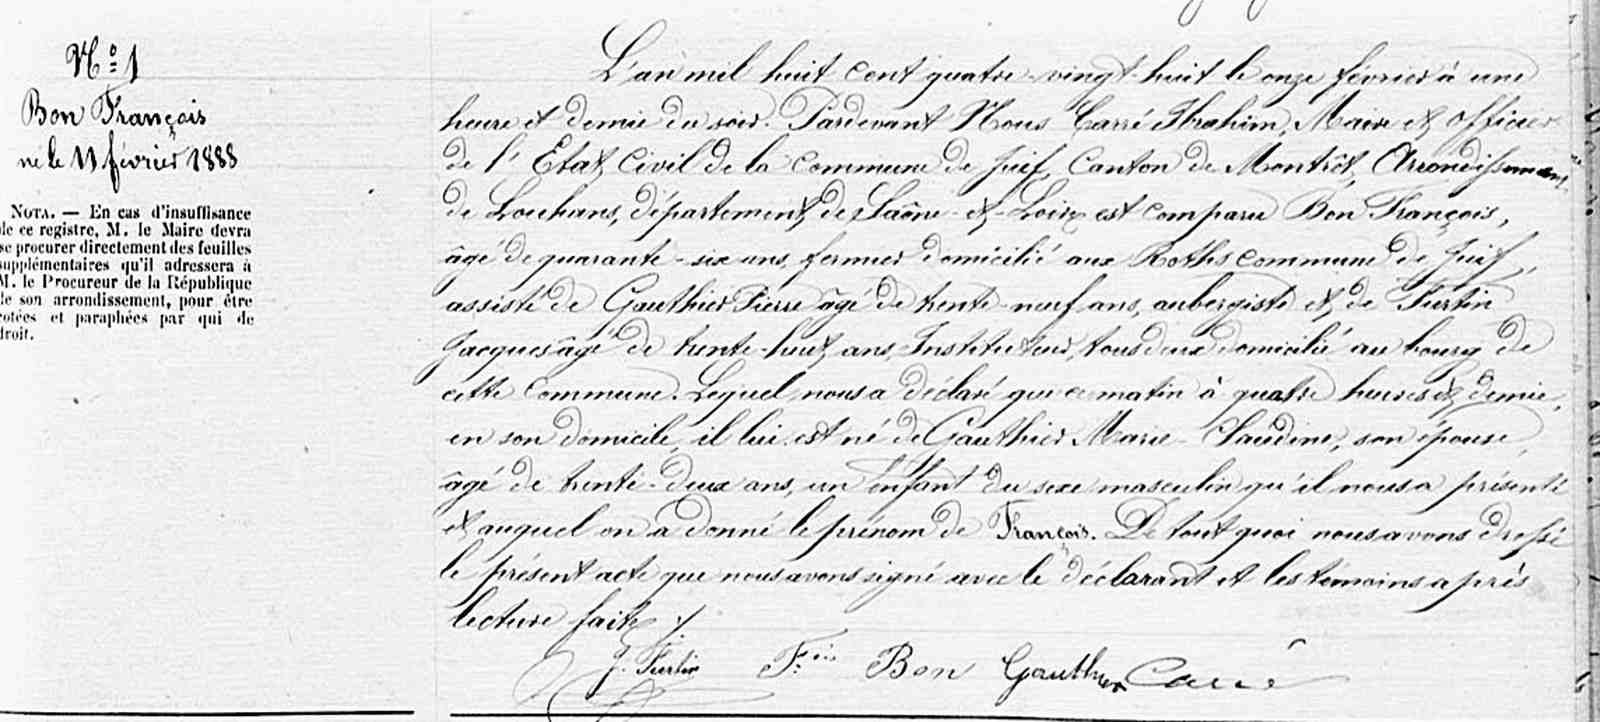 N° 1
Bon François
né le 11 février 1888
NOTA. — En cas d'insuffisance
de ce registre, M. le Maire devra
se procurer directement des feuilles
supplémentaires qu'il adressera à
M. le Procureur de la République
de son arrondissement, pour être
cotées et paraphées par qui de
droit.
L'an mil huit cent quatre-vingt-huit le onze février à une
heure et demie du soir. Pardevant Nous Carré Ibrahim, Maire et officier
de l'Etat Civil de la Commune de Juif, Canton de Montrêt, Arrondissement
de Louhans, département de Saône-et-Loire est comparu Bon François,
âgé de quarante-six ans, fermier domicilié aux commune de Juif,
assisté de Gauthier Pierre âgé de trente-neuf ans, aubergiste et de Furtin
Jacques âgé de trente-huit ans, Instituteur, tous deux domicilié au bourg de
cette Commune. Lequel nous a déclaré que ce matin à quatre heures et demie,
en son domicile, il lui est né de Gauthier Marie-Claudine, son épouse,
âgé de trente-deux ans, un enfant du sexe masculin qu'il nous a présenté
et auquel on a donné le prénom de François. De tout quoi nous avons dressé
le présent acte que nous avons signé avec le déclarant et les témoins après
lecture faite ./.
J. Furtin F.ois Bon Gauthier Carré